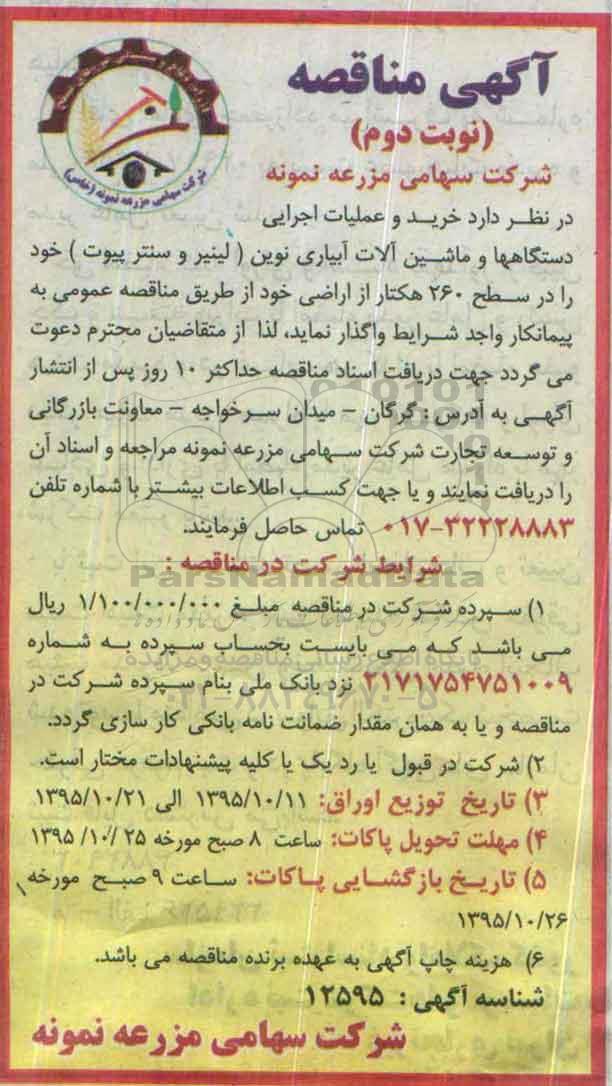 آگهی مناقصه
(نوبت دوم)
شرکت سهامی مزرعه نمونه
شرکت سهامی مزرعه نمونه (خاص)
در نظر دارد خرید و عملیات اجرایی
دستگاهها و ماشین آلات آبیاری نوین ( لینیر و سنتر پیوت ) خود
را در سطح ۲۶۰ هکتار از اراضی خود از طریق مناقصه عمومی به
پیمانکار واجد شرایط واگذار نماید، لذا از متقاضیان محترم دعوت
می گردد جهت دریافت اسناد مناقصه حداکثر ۱۰ روز پس از انتشار
آگهی به آدرس : گرگان - میدان سرخواجه - معاونت بازرگانی
و توسعه تجارت شرکت سهامی مزرعه نمونه مراجعه و اسناد آن
را دریافت نمایند و یا جهت کسب اطلاعات بیشتر با شماره تلفن
۰۱۷-۳۲۲۲۸۸۸۳ تماس حاصل فرمایند.
شرایط شرکت در مناقصه :
ParsNamadData
۱) سپرده شرکت در مناقصه مبلغ ۱/۱۰۰/۰۰۰/۰۰۰ ریال
می باشد که می بایست بحساب سپرده به شماره
۲۱۷۱۷۵۴۷۵۱۰۰۹ نزد بانک ملی بنام سپرده شرکت در
مناقصه و یا به همان مقدار ضمانت نامه بانکی کار سازی گردد.
۲) شرکت در قبول یا رد یک یا کلیه پیشنهادات مختار است.
۳) تاریخ توزیع اوراق: ۱۳۹۵/۱۰/۱۱ الی ۱۳۹۵/۱۰/۲۱
۴) مهلت تحویل پاکات: ساعت ۸ صبح مورخه ۲۵ /۱۰/ ۱۳۹۵
۵) تاریخ بازگشایی پاکات: ساعت ۹ صبح مورخه
۱۳۹۵/۱۰/۲۶
۶) هزینه چاپ آگهی به عهده برنده مناقصه می باشد.
شناسه آگهی : ۱۲۵۹۵
شرکت سهامی مزرعه نمونه